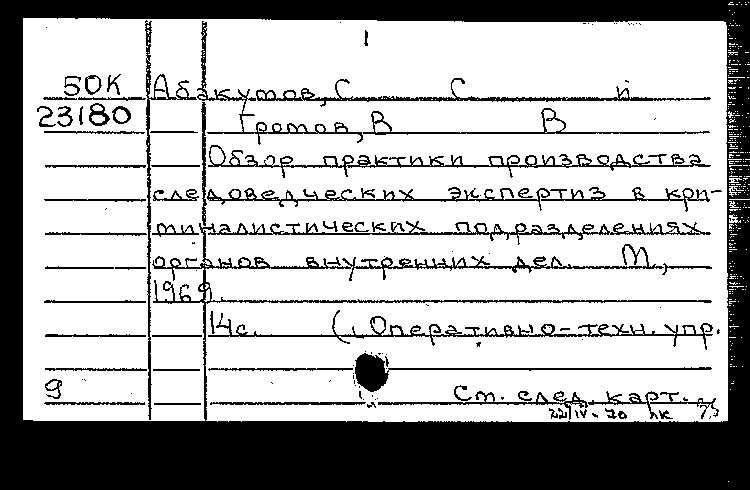 1
50К Абакумов, С С и
23180 Громов, В В
Обзор практики производства
следоведческих экспертиз в кри-
миналистических подразделениях
органов внутренних дел. М.,
1969.
14с. (, Оперативно-техн. упр.
9 См. след. карт.
22/IV-70 лк